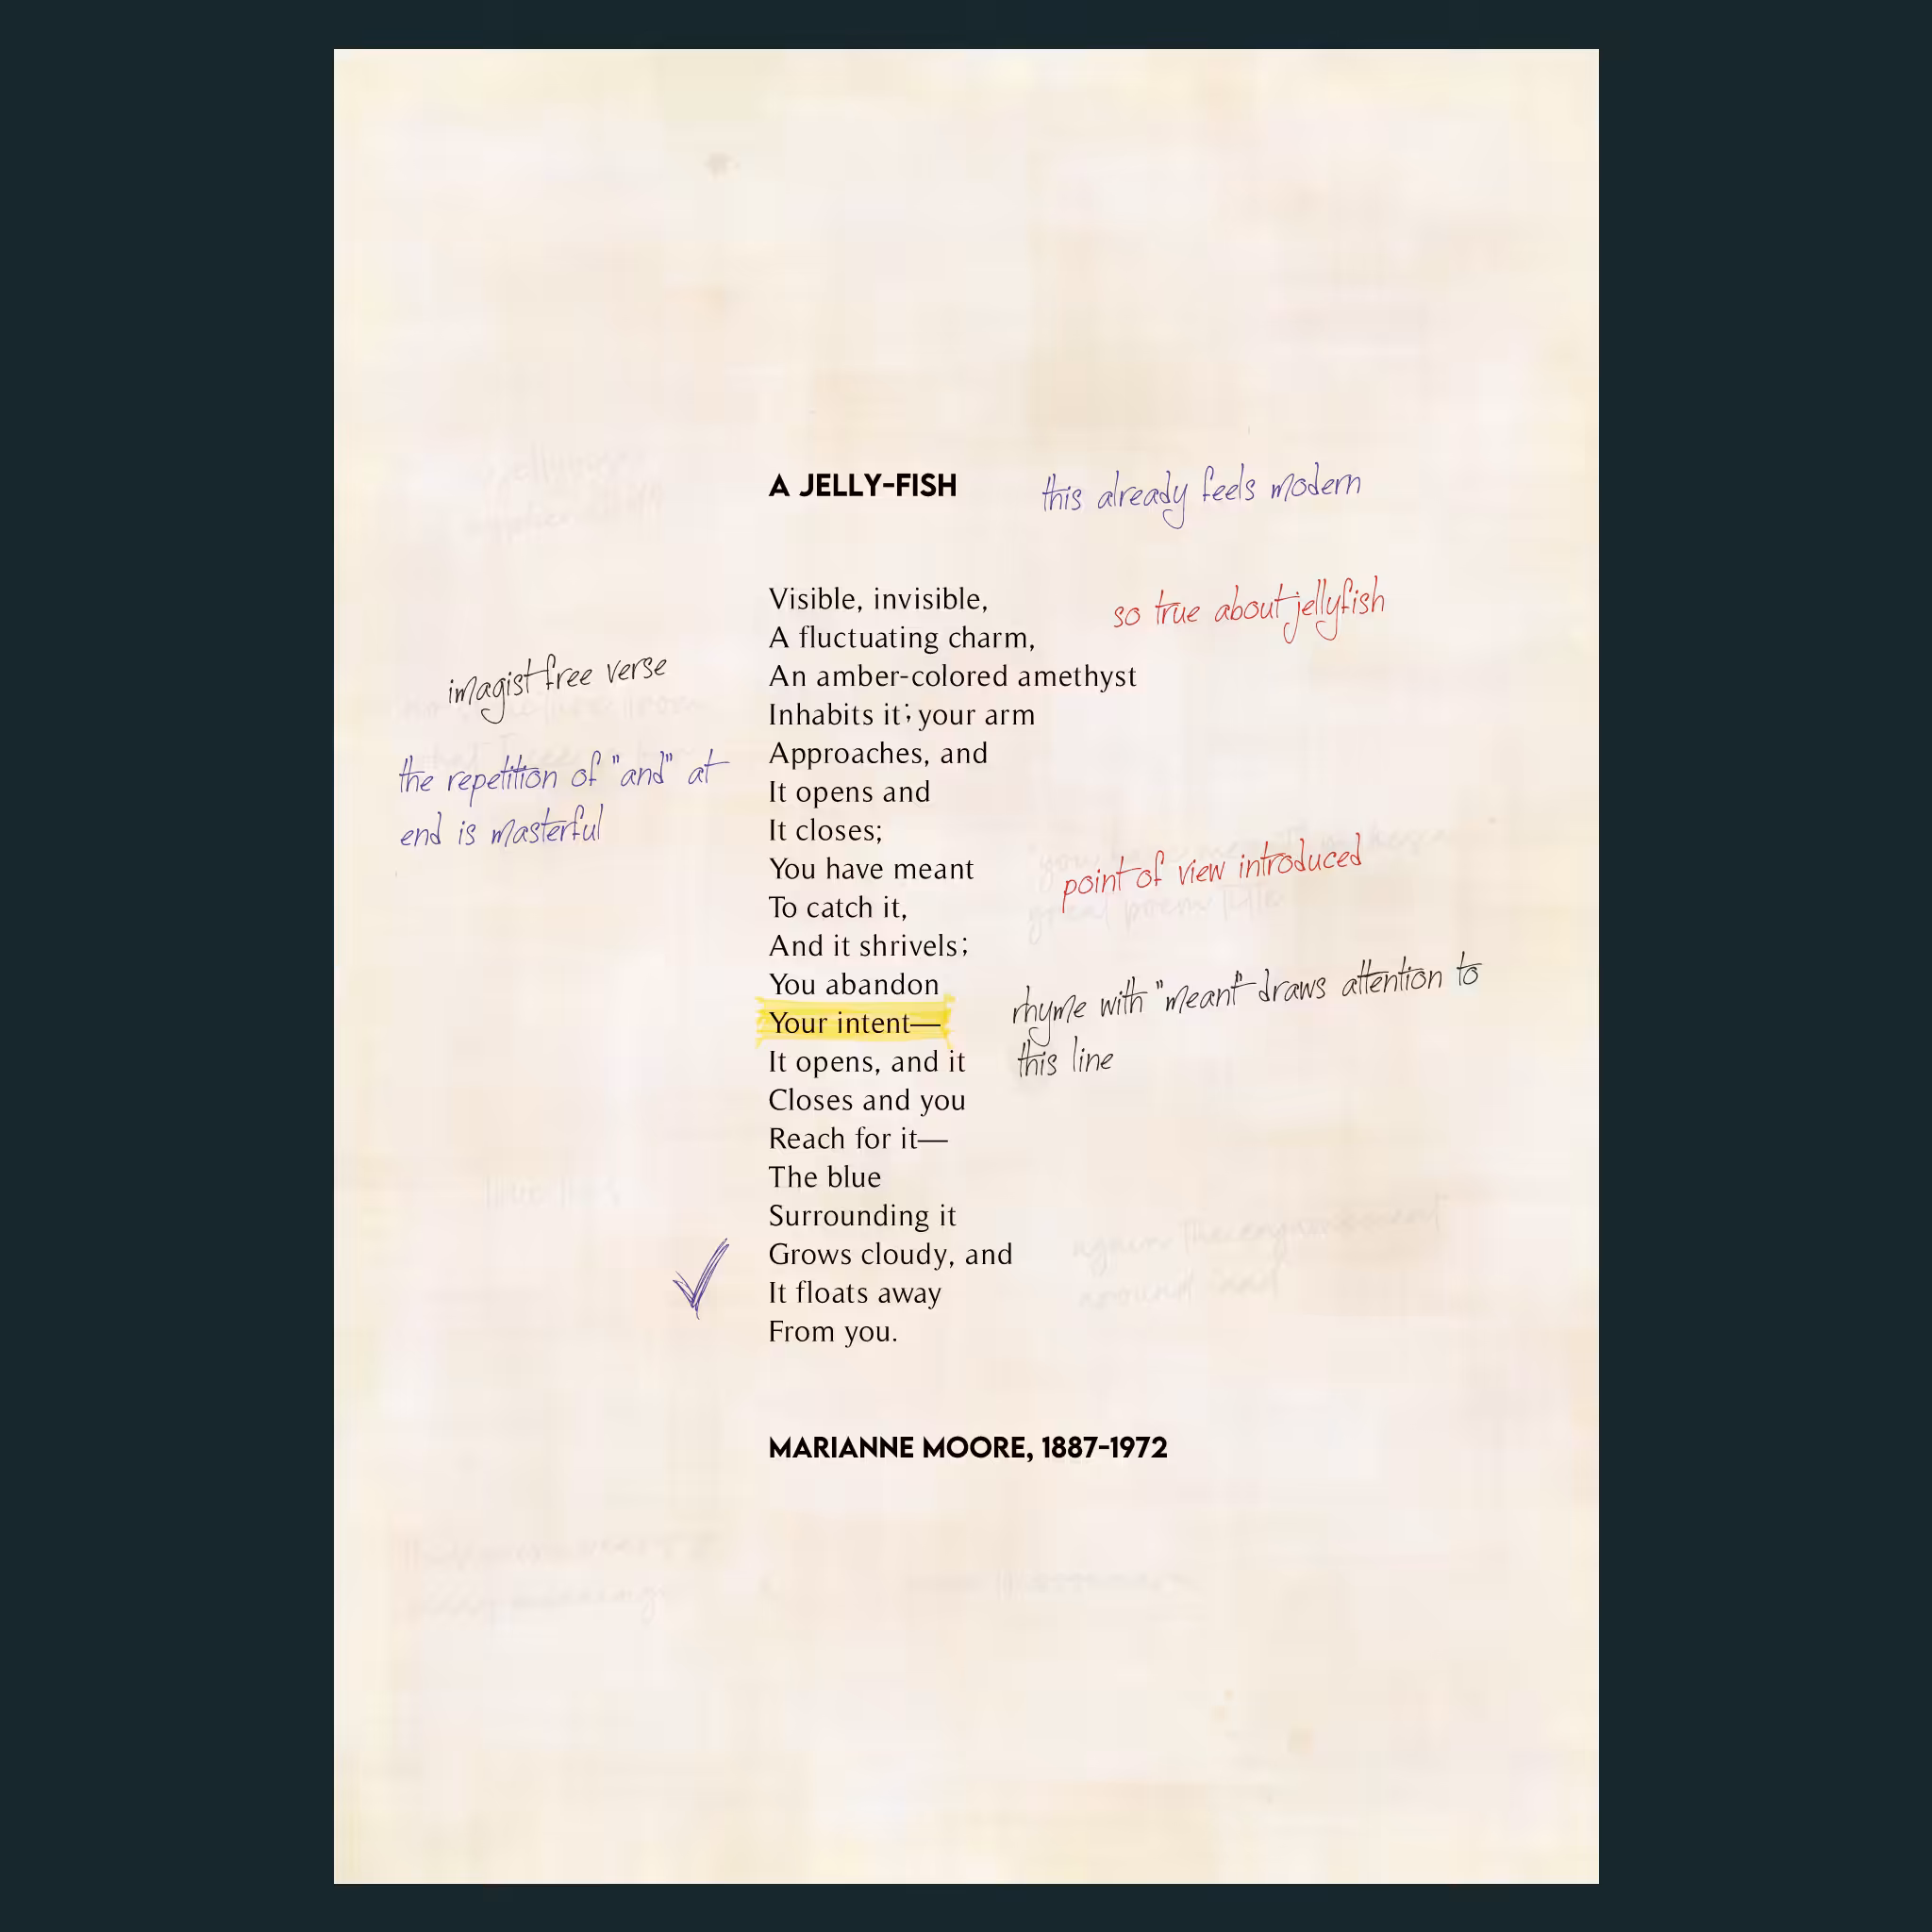 A JELLY-FISH
this already feels modern
Visible, invisible,
so true about jellyfish
A fluctuating charm,
An amber-colored amethyst
imagist free verse
Inhabits it; your arm
Approaches, and
the repetition of "and" at
end is masterful
It opens and
It closes;
You have meant
point of view introduced
To catch it,
And it shrivels;
You abandon
Your intent—
rhyme with "meant" draws attention to
this line
It opens, and it
Closes and you
Reach for it—
The blue
Surrounding it
Grows cloudy, and
It floats away
From you.
MARIANNE MOORE, 1887-1972